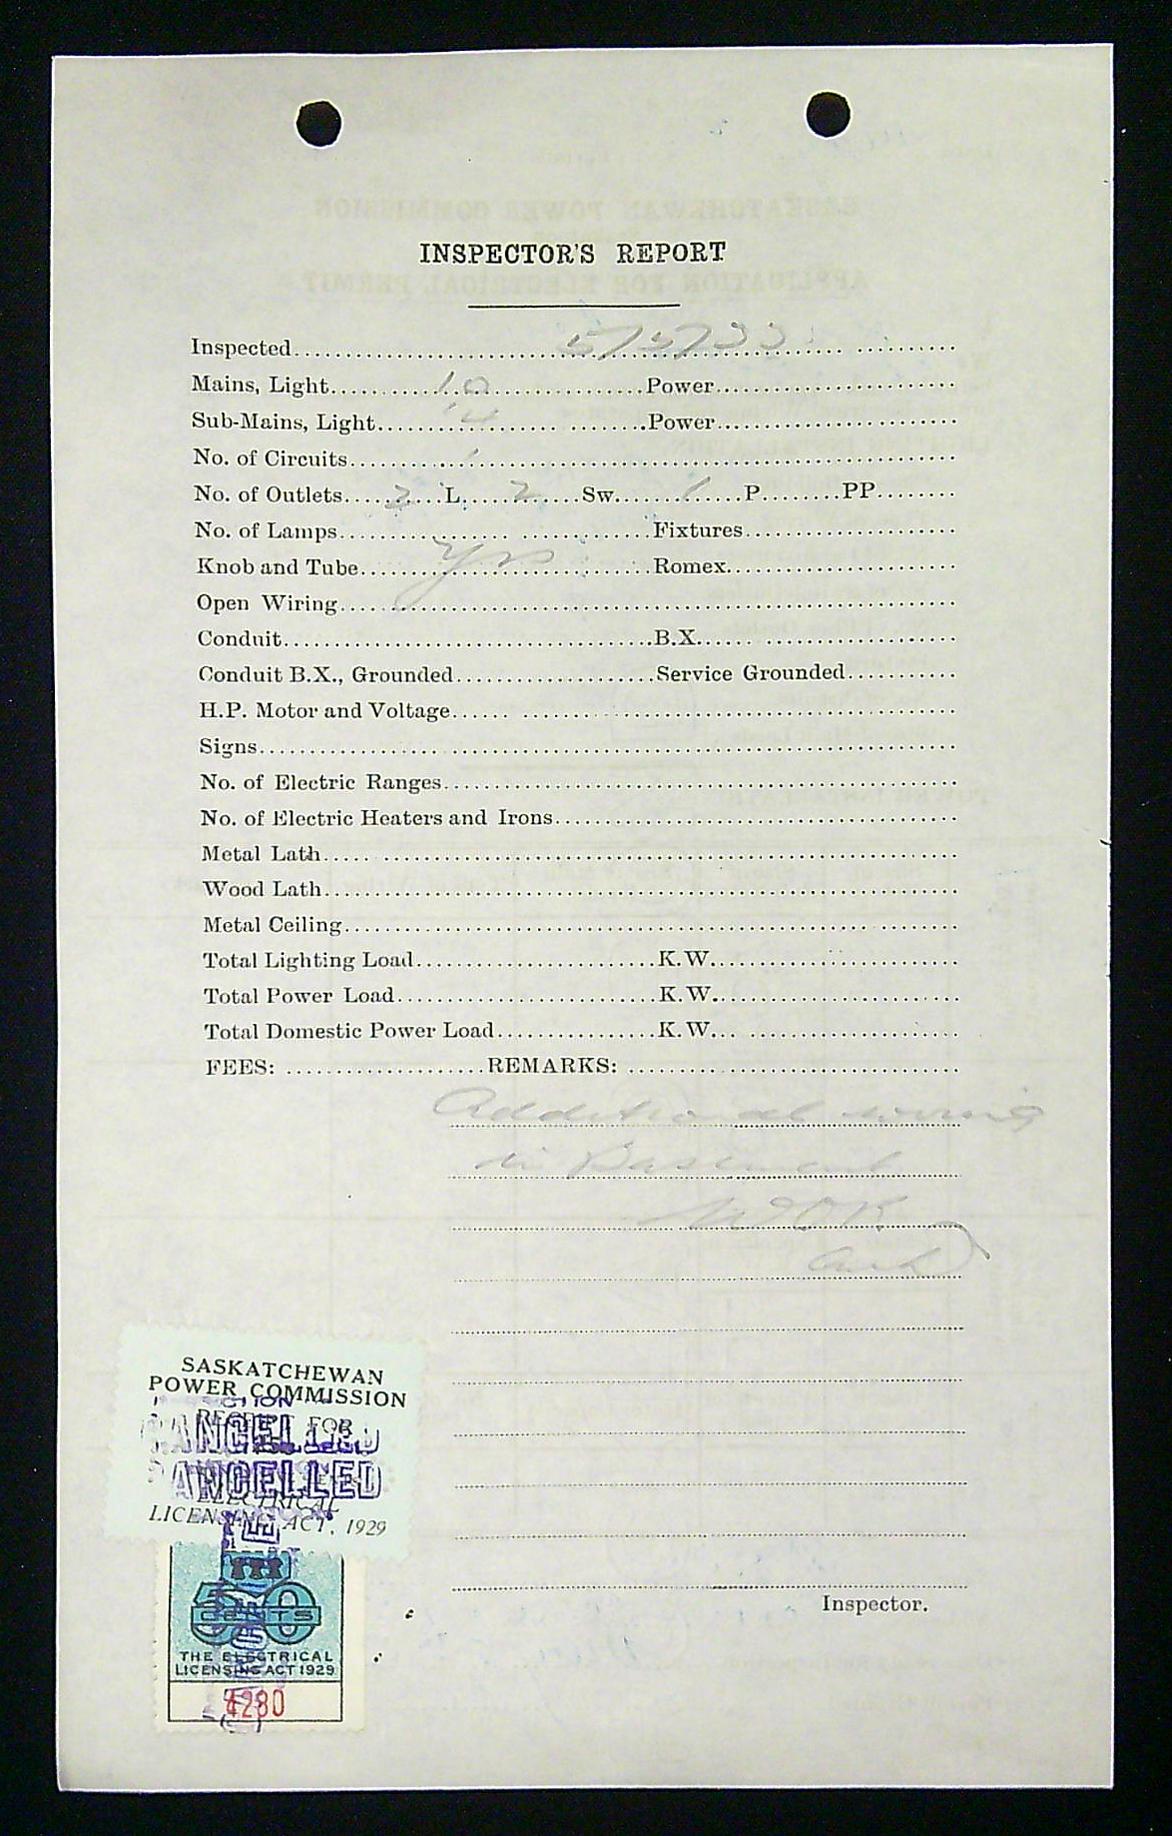 INSPECTOR'S REPORT
Inspected 5/5/33
Mains, Light 10 Power
Sub-Mains, Light 14 Power
No. of Circuits
No. of Outlets 3 L. 2 Sw. 1 P. PP.
No. of Lamps Fixtures
Knob and Tube yes Romex
Open Wiring
Conduit B.X.
Conduit B.X., Grounded Service Grounded
H.P. Motor and Voltage
Signs
No. of Electric Ranges
No. of Electric Heaters and Irons
Metal Lath
Wood Lath
Metal Ceiling
Total Lighting Load K.W.
Total Power Load K.W.
Total Domestic Power Load K.W.
FEES: REMARKS:
Additional wiring
in Basement
OK
Inspector.
SASKATCHEWAN
POWER COMMISSION
RECEIPT FOR
CANCELLED
CANCELLED
ELECTRICAL
LICENSING ACT, 1929
50
CENTS
THE ELECTRICAL
LICENSING ACT 1929
4280